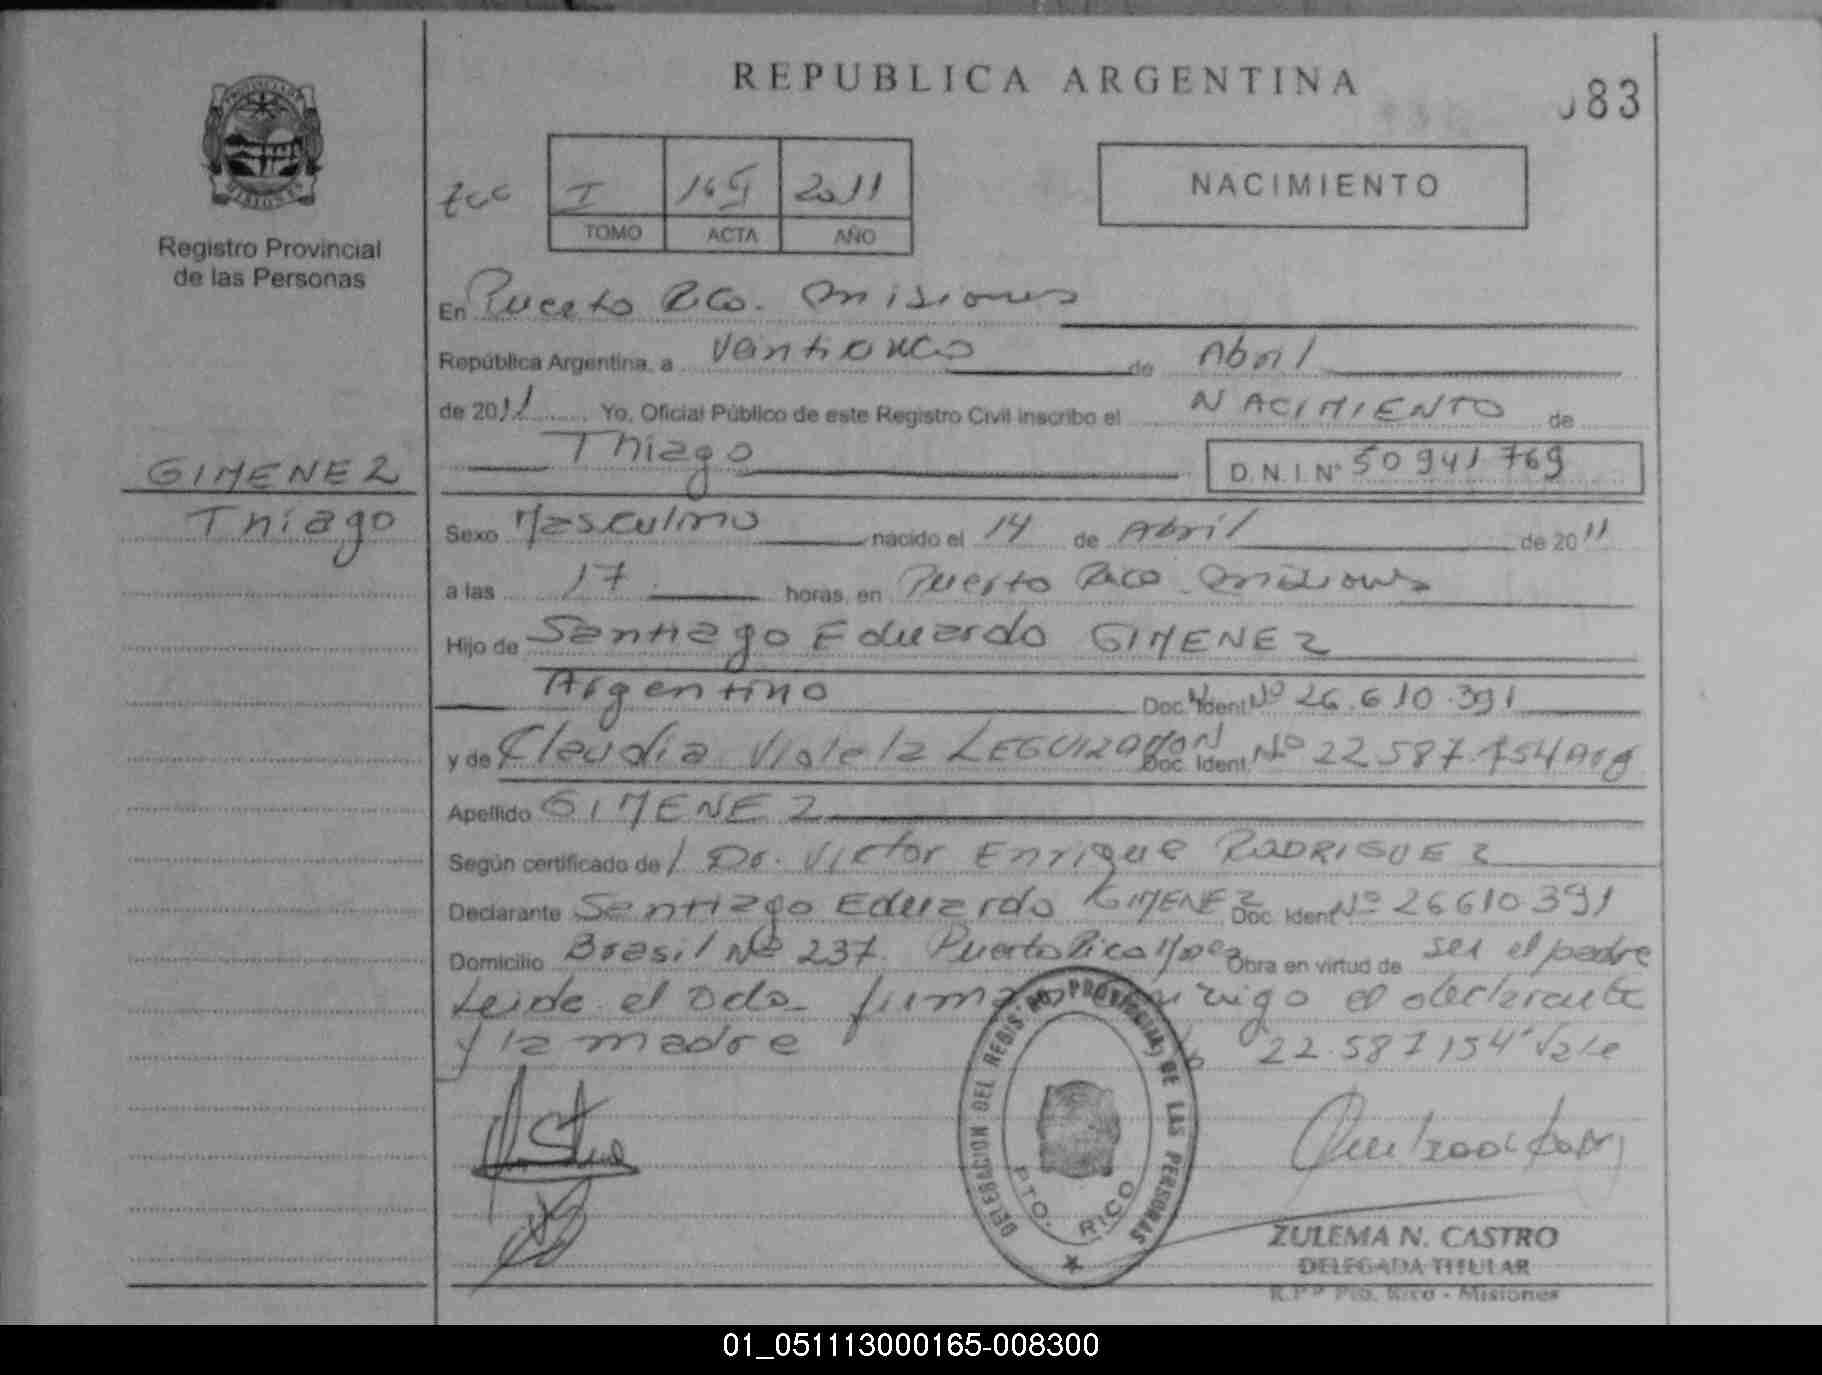 REPUBLICA ARGENTINA
083
PROVINCIA DE MISIONES
Registro Provincial
de las Personas
I 165 2011
TOMO ACTA AÑO
NACIMIENTO
En Puerto Rico. Misiones
República Argentina, a Veintionco de Abril
de 2011 Yo, Oficial Público de este Registro Civil inscribo el NACIMIENTO de
Thiago D.N.I. Nº 50941769
GIMENEZ
Thiago
Sexo Masculino nacido el 14 de Abril de 2011
a las 17 horas, en Puerto Rico Misiones
Hijo de Santiago Eduardo GIMENEZ
Argentino Doc. Ident. Nº 26.610.391
y de Claudia Violeta LEGUIZAMON Doc. Ident. Nº 22.587.154 Arg
Apellido GIMENEZ
Según certificado de Dr. Victor Enrique RODRIGUEZ
Declarante Santiago Eduardo GIMENEZ Doc. Ident Nº 26610.391
Domicilio Brasil Nº 237. Puerto Rico Obra en virtud de ser el padre
Leida el acta firman el declarante
y la madre 22.587.154 Vale
DELEGACION DEL REGISTRO PROVINCIAL DE LAS PERSONAS
PTO. RICO
ZULEMA N. CASTRO
DELEGADA TITULAR
R.P.P Pto. Rico - Misiones
01_051113000165-008300